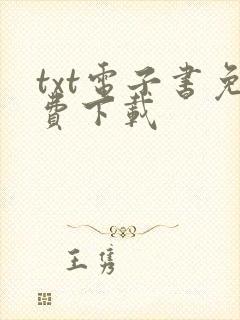 txt電子書免
費下載
王隽